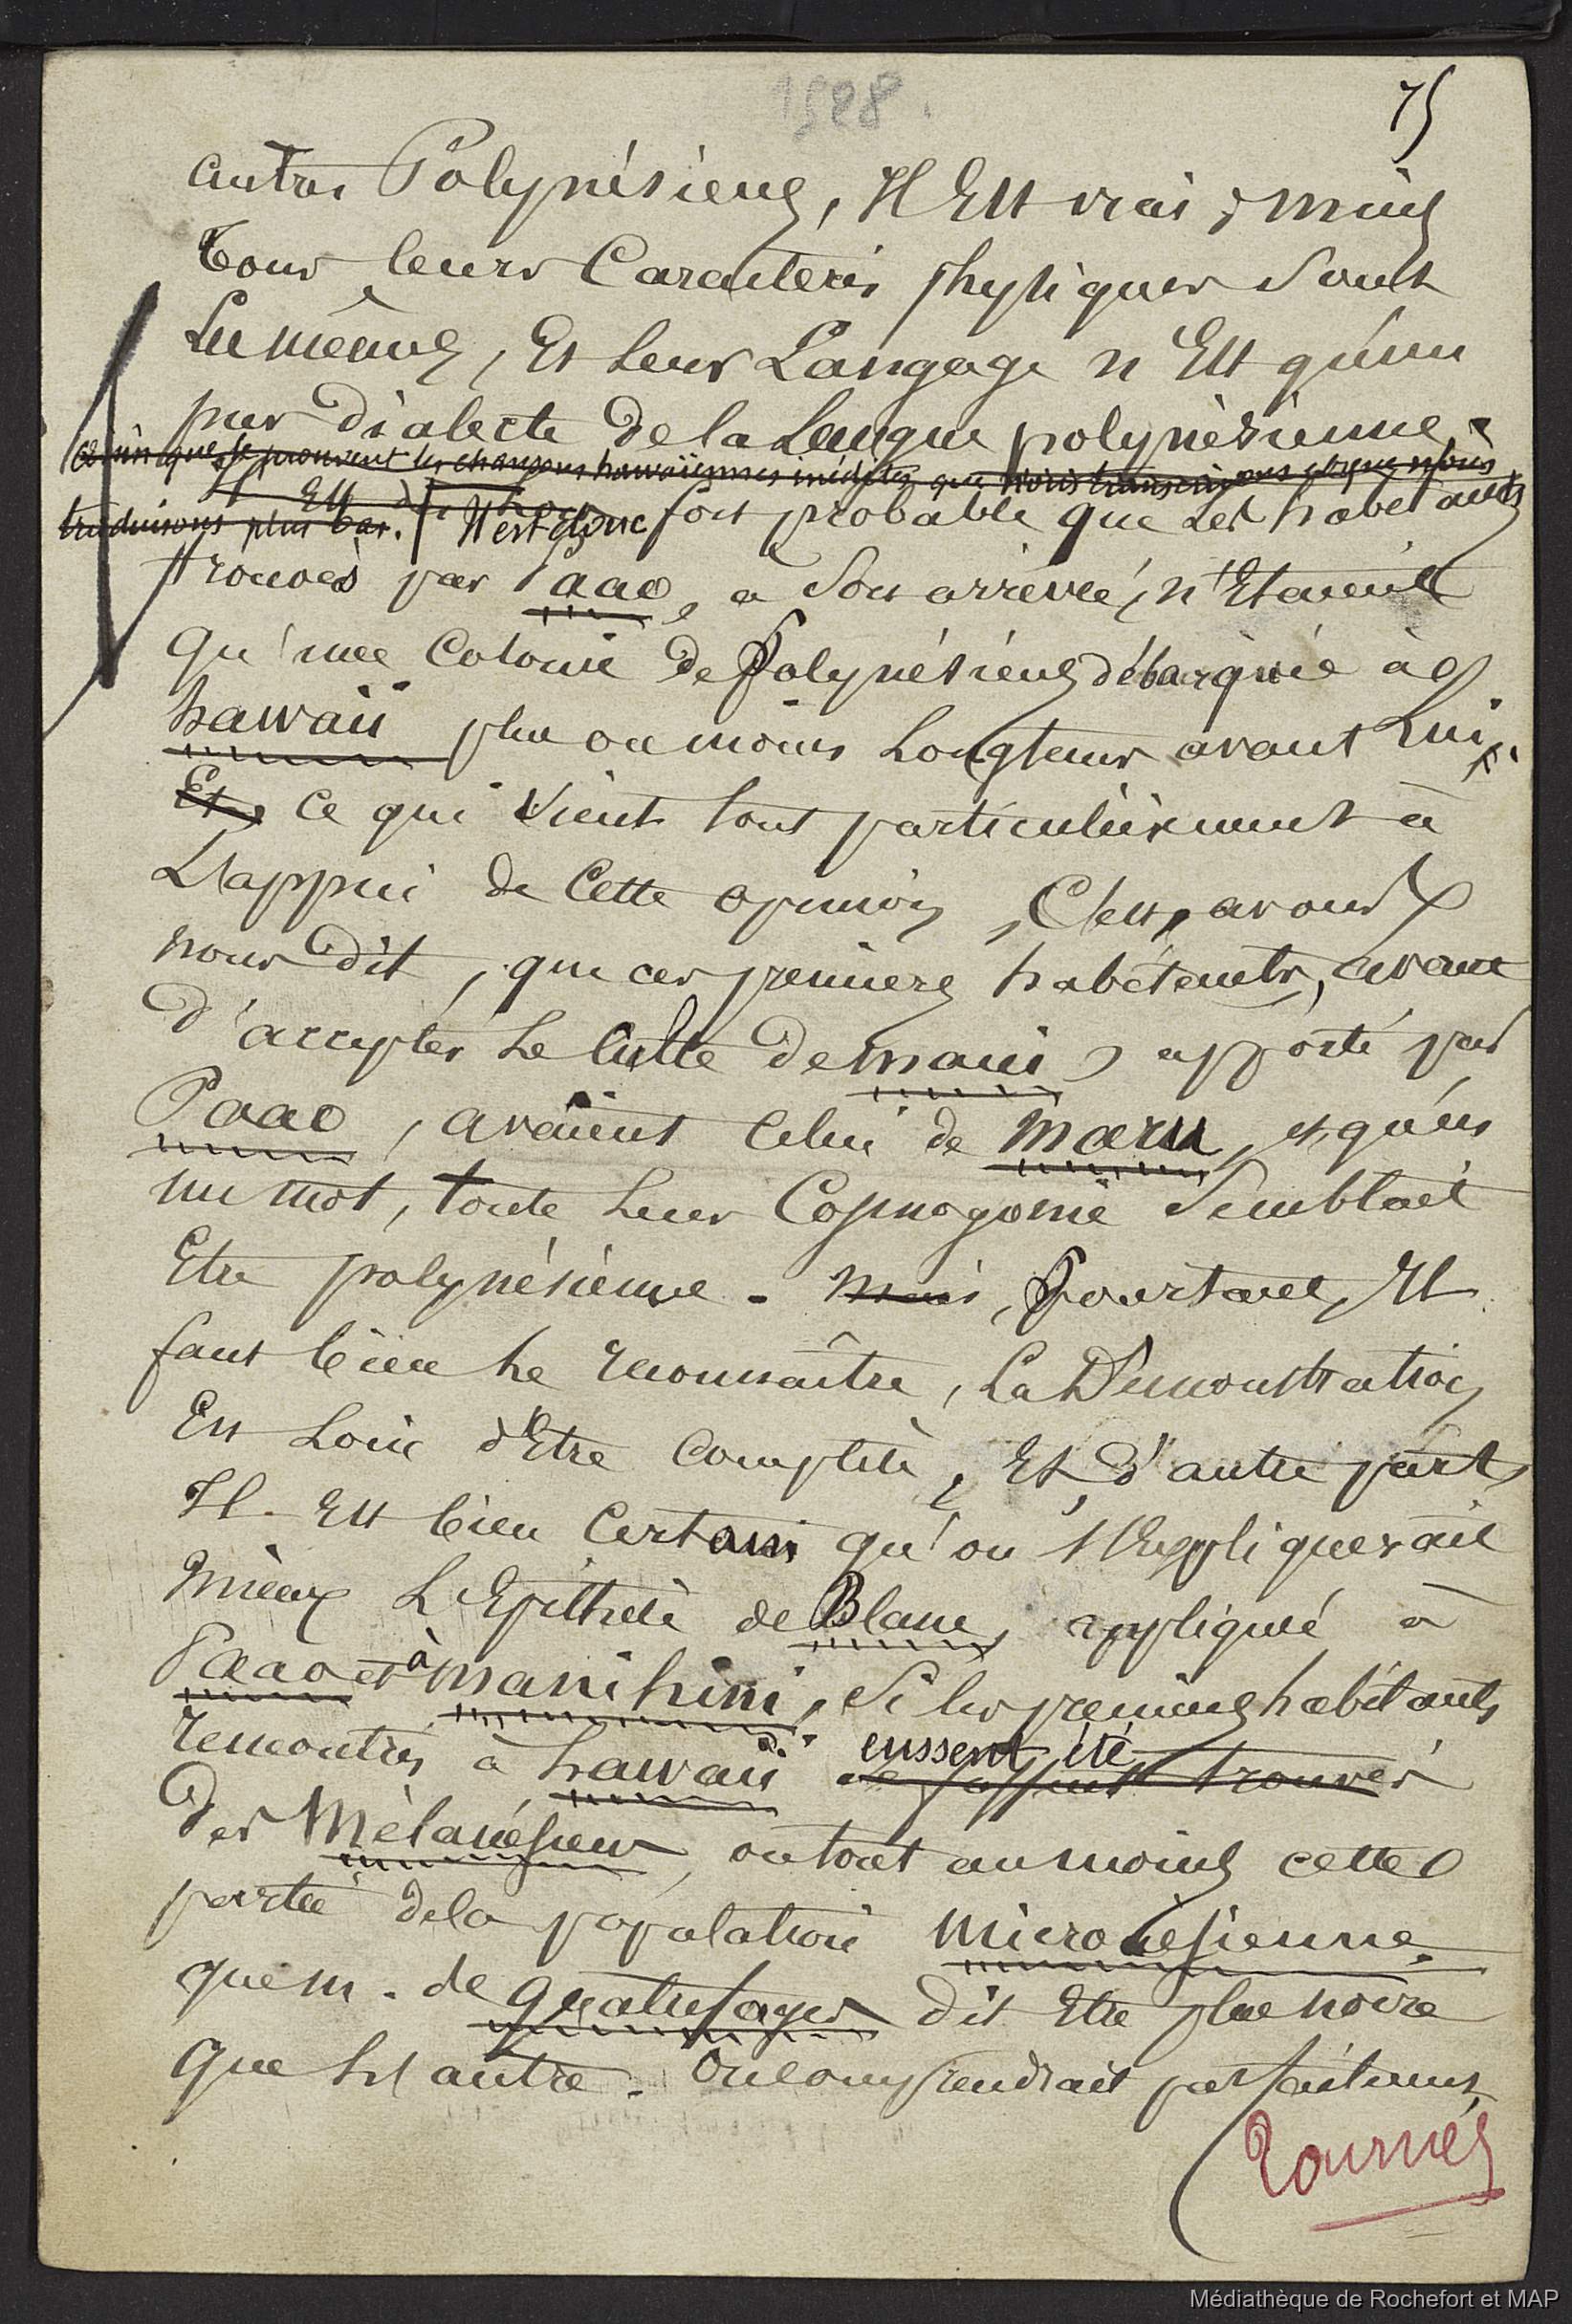 1528.
75
autres Polynésiens, Il Est vrai ; mais
tous leurs Caractères physiques sont
Les mêmes, Et leur Langage n'Est qu'un
pur Dialecte De la Langue polynésienne,
ainsi que le prouvent les chansons hawaiiennes inédites que nous transcrivons et que nous
traduisons plus bas. Il Est donc Il est donc fort probable que Les habitants
trouvés par Paao, à Son arrivée, n'Etaient
Qu'une Colonie De Polynésiens débarquée à
hawaii plus ou moins Longtems avant Lui.
Et, Ce qui Vient tout particulièrement à
L'appui de Cette opinion, C'est, avons
nous Dit, que ces premiers habitants, avant
d'accepter Le Culte De maui, apporté par
Paao, avaient Celui de maru, et, qu'en
un mot, toute Leur Cosmogonie Semblait
Etre polynésienne. Mais, Pourtant, Il
faut bien Le reconnaître, La Démonstration
Est Loin d'Etre Complète, Et, D'autre part,
Il Est bien Certain qu'on s'Expliquerait
Mieux L'Epithète de Blanc, appliqué à
Paao et à manihini, Si les premiers habitants
rencontrés à hawaii eussent été
se fussent trouvés
Des Mélanésiens, ou tout au moins cette
partie de la population micronésienne
que m. de Quatrefages Dit Etre plus noire
Que L'autre. On comprendrait parfaitement
Tournez
Médiathèque de Rochefort et MAP